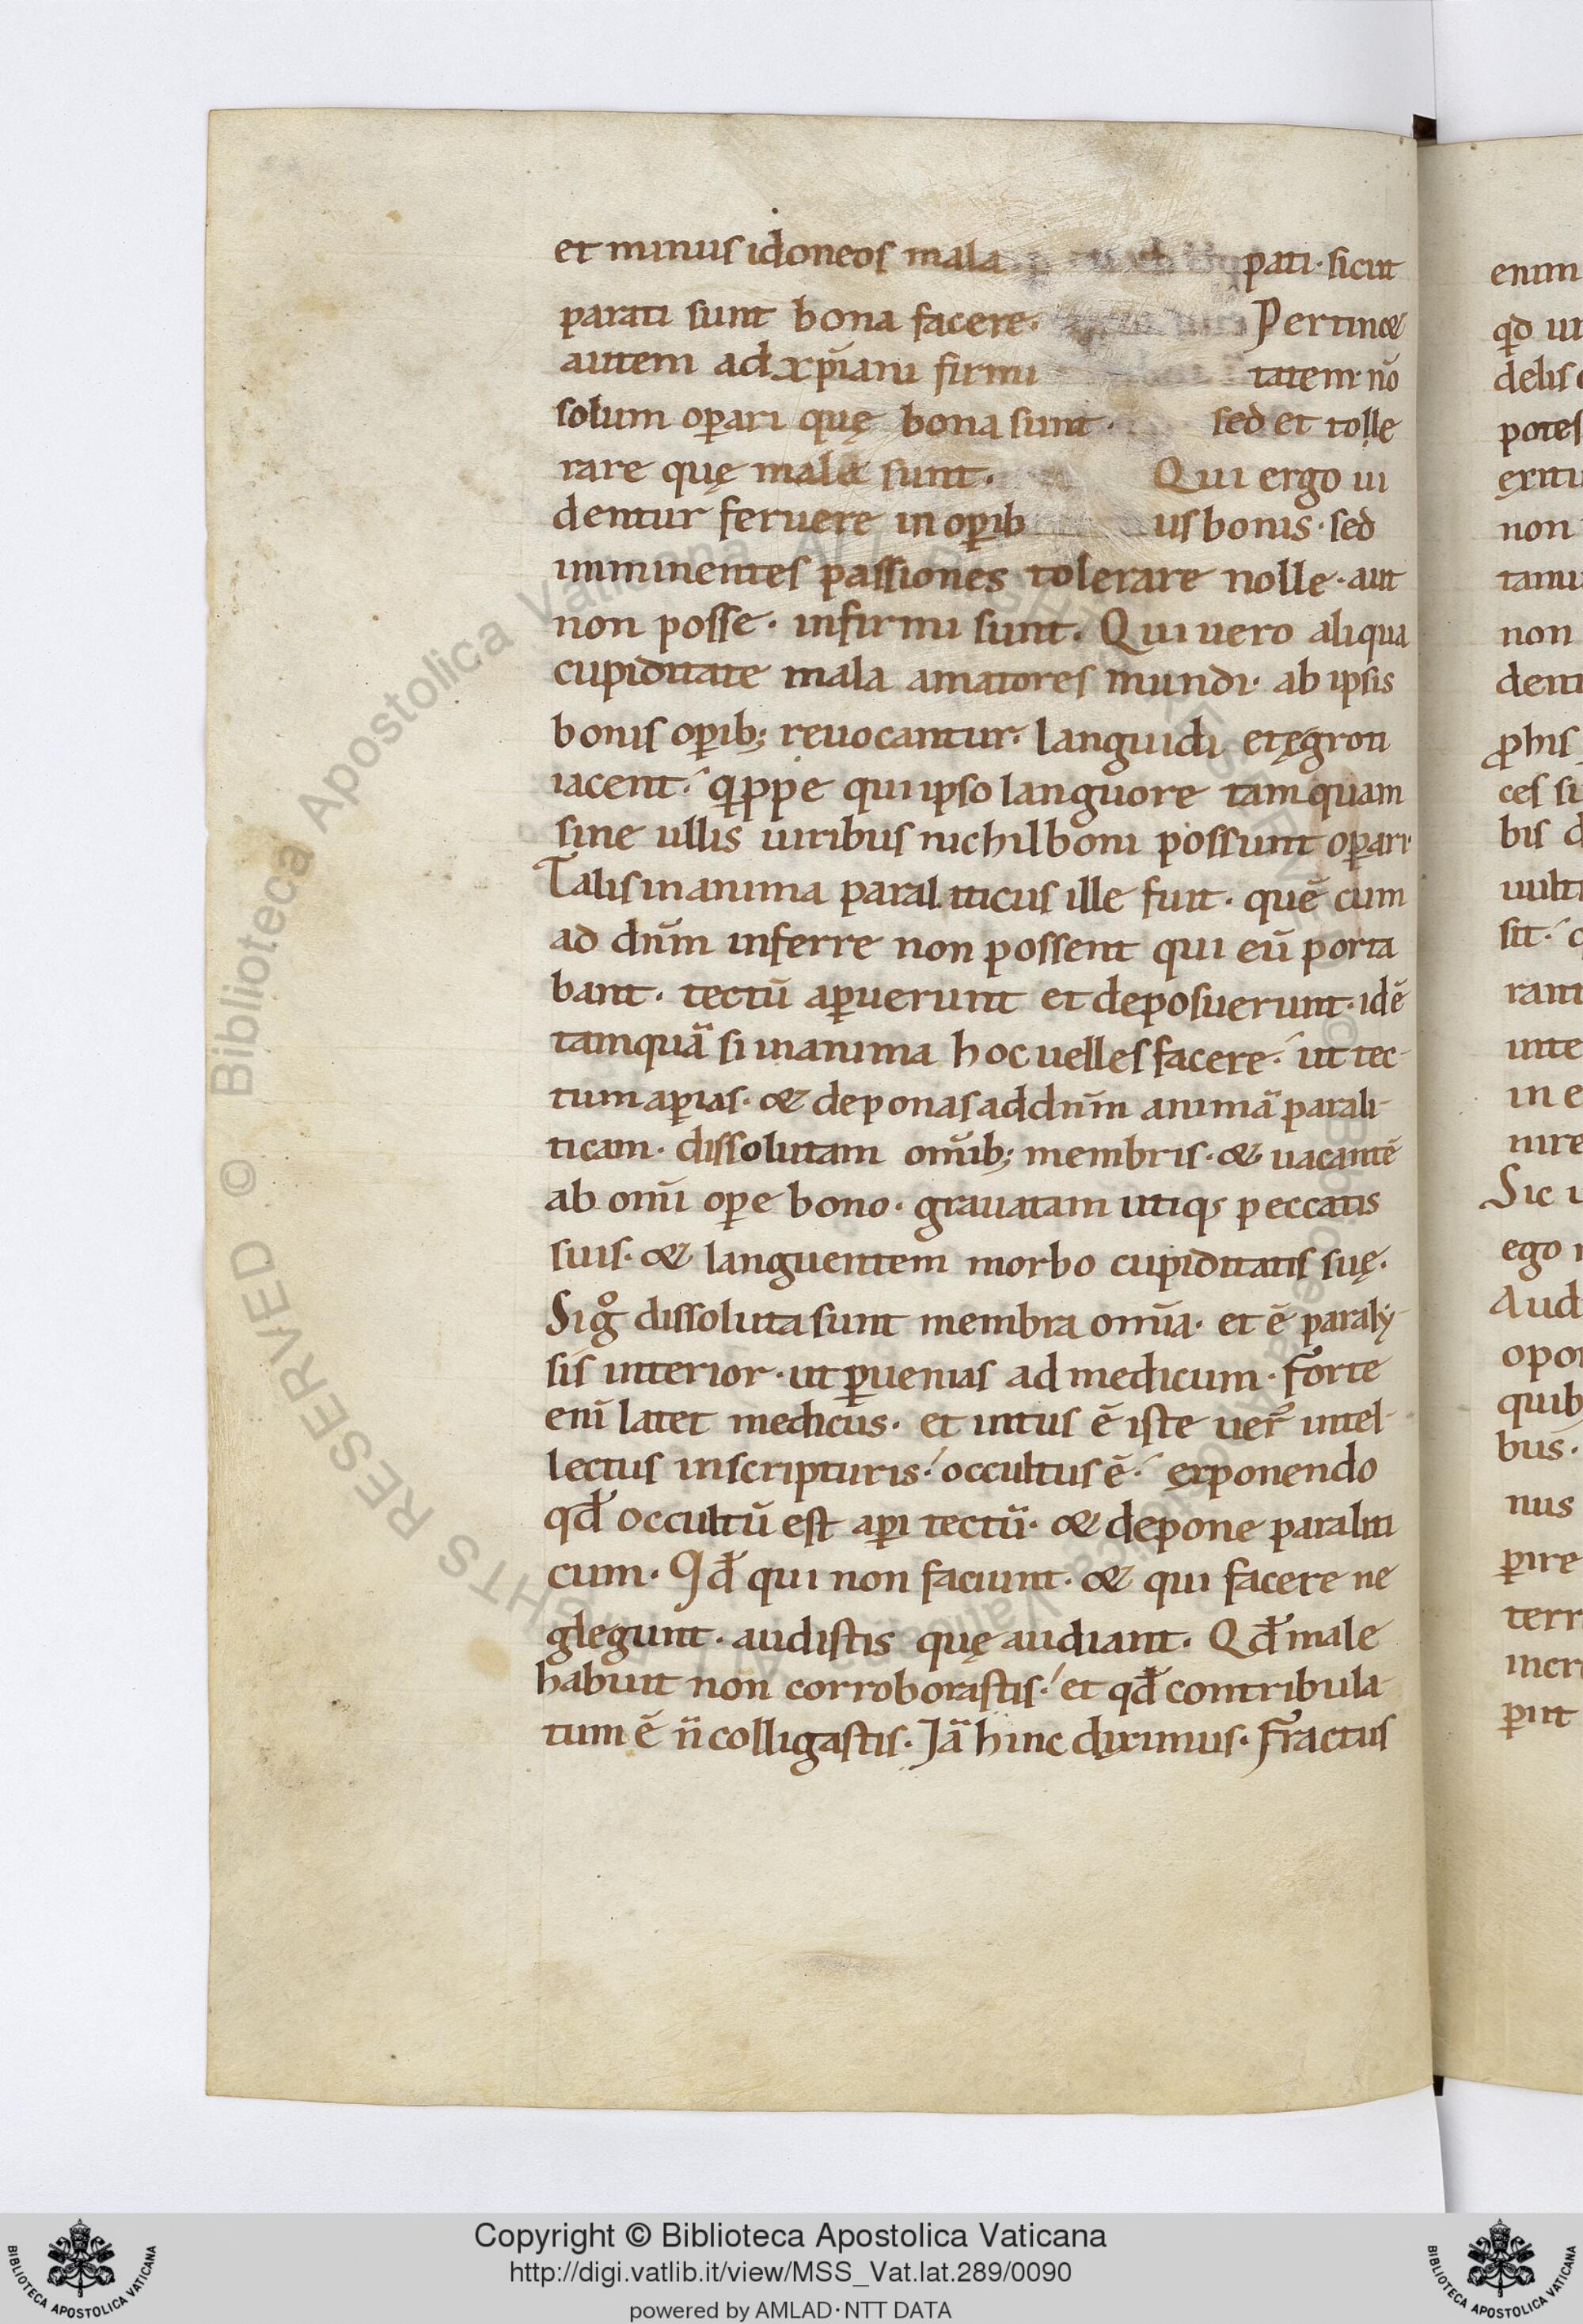 et minus idoneos mala pati · sicut
parati sunt bona facere · Pertin&
autem ad xp̄iani firmi tatem · nō
solum oꝑari quę bona sunt · sed et tolle
rare quę mala sunt · Qui ergo ui
dentur feruere in oꝑib us bonis · sed
imminentes passiones tolerare nolle · aut
non posse · infirmi sunt · Qui uero aliqua
cupiditate mala amatores mundi · ab ipsis
bonis oꝑib; reuocantur · languidi et ęgroti
iacent · qippe qui ipso languore tamquam
sine ullis uiribus nichil boni possunt oꝑari ·
Talis in anima paraliticus ille fuit · quē cum
ad dn̄m inferre non possent qui eū porta
bant · tectū aꝑuerunt et deposuerunt · idē
tamquā si in anima hoc uelles facere · ut tec-
tum aꝑias · & deponas ad dn̄m animā parali-
ticam · dissolutam om̄ib; membris · & uacantē
ab om̄i oꝑe bono · grauatam utiq; peccatis
suis · & languentem morbo cupiditatis suę ·
Si gͦ dissoluta sunt membra om̄ia · et ē paraly-
sis interior · ut ꝑuenias ad medicum · forte
enī latet medicus · et intus ē iste uer᷒ intel-
lectus in scripturis · occultus ē · exponendo
qđ occultū est aꝑi tectū · & depone paraliti
cum · Qđ qui non faciunt · & qui facere ne
glegunt · audistis quę audiant · Qđ male
habuit non corroborastis · et qđ contribula
tum ē n̄ colligastis · Jā hinc diximus · fractus
enim
delis
potes
non
tanu
non
ces si
bis
sit ·
rant
in e
Sic
ego
Aud
opor
quib
bus ·
nus
ꝑire
terr
ꝑit
© Biblioteca Apostolica Vaticana ALL RIGHTS RESERVED
Copyright © Biblioteca Apostolica Vaticana
http://digi.vatlib.it/view/MSS_Vat.lat.289/0090
powered by AMLAD · NTT DATA
BIBLIOTECA APOSTOLICA VATICANA
BIBLIOTECA APOSTOLICA VATICANA